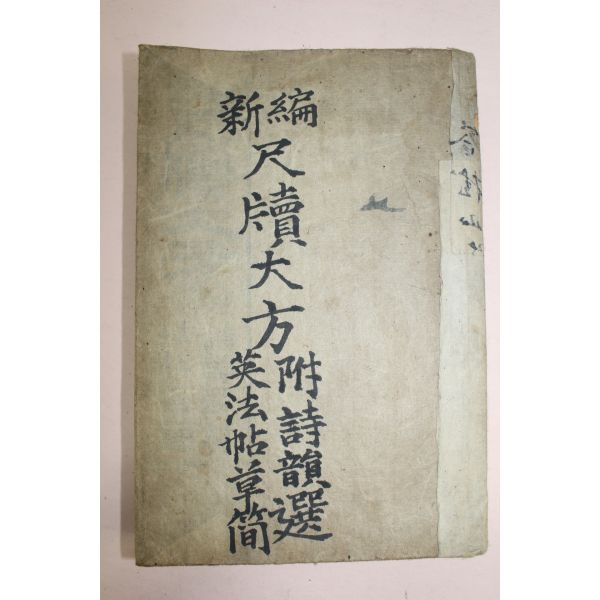 新編
尺牘大方
附詩韻選
英法帖草簡